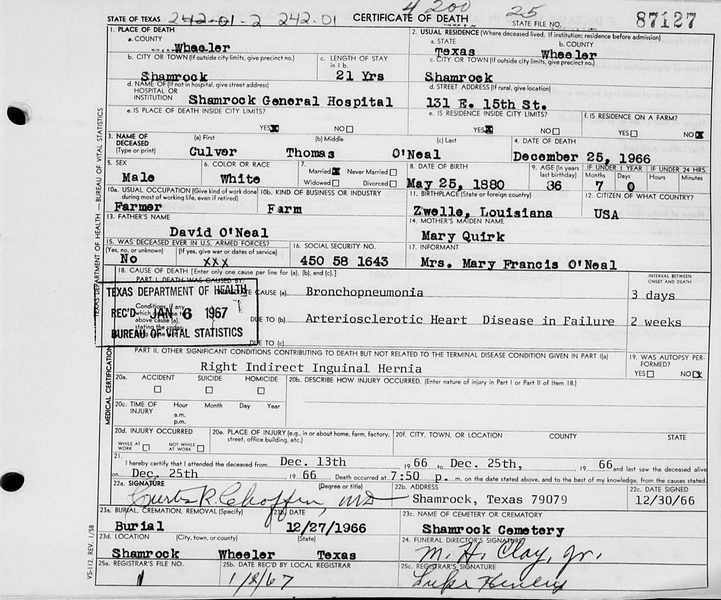 STATE OF TEXAS 242-01-2 242-01 4200 CERTIFICATE OF DEATH 25 STATE FILE NO. 87127
1. PLACE OF DEATH
a. COUNTY
Wheeler
2. USUAL RESIDENCE (Where deceased lived. If institution: residence before admission)
a. STATE b. COUNTY
Texas Wheeler
b. CITY OR TOWN (If outside city limits, give precinct no.) c. LENGTH OF STAY in 1 b.
Shamrock 21 Yrs
c. CITY OR TOWN (If outside city limits, give precinct no.)
Shamrock
d. NAME OF (If not in hospital, give street address) HOSPITAL OR INSTITUTION
Shamrock General Hospital
d. STREET ADDRESS (If rural, give location)
131 E. 15th St.
e. IS PLACE OF DEATH INSIDE CITY LIMITS?
YES X NO
e. IS RESIDENCE INSIDE CITY LIMITS? f. IS RESIDENCE ON A FARM?
YES X NO YES NO X
3. NAME OF DECEASED (Type or print) (a) First (b) Middle (c) Last 4. DATE OF DEATH
Culver Thomas O'Neal December 25, 1966
5. SEX 6. COLOR OR RACE 7. Married X Never Married Widowed Divorced
Male White
8. DATE OF BIRTH 9. AGE (In years last birthday) IF UNDER 1 YEAR Months Days IF UNDER 24 HRS. Hours Minutes
May 25, 1880 36 7 0
10a. USUAL OCCUPATION (Give kind of work done during most of working life, even if retired) 10b. KIND OF BUSINESS OR INDUSTRY
Farmer Farm
11. BIRTHPLACE (State or foreign country) 12. CITIZEN OF WHAT COUNTRY?
Zwelle, Louisiana USA
13. FATHER'S NAME 14. MOTHER'S MAIDEN NAME
David O'Neal Mary Quirk
15. WAS DECEASED EVER IN U.S. ARMED FORCES? (Yes, no, or unknown) (If yes, give war or dates of service) 16. SOCIAL SECURITY NO. 17. INFORMANT
No XXX 450 58 1643 Mrs. Mary Francis O'Neal
18. CAUSE OF DEATH [Enter only one cause per line for (a), (b), and (c).] INTERVAL BETWEEN ONSET AND DEATH
PART I. DEATH WAS CAUSED BY
CAUSE (a) Bronchopneumonia 3 days
Conditions, if any
DUE TO (b) Arteriosclerotic Heart Disease in Failure 2 weeks
DUE TO (c)
TEXAS DEPARTMENT OF HEALTH
REC'D JAN 6 1967
BUREAU OF VITAL STATISTICS
PART II. OTHER SIGNIFICANT CONDITIONS CONTRIBUTING TO DEATH BUT NOT RELATED TO THE TERMINAL DISEASE CONDITION GIVEN IN PART I(a) 19. WAS AUTOPSY PERFORMED?
Right Indirect Inguinal Hernia YES NO X
20a. ACCIDENT SUICIDE HOMICIDE 20b. DESCRIBE HOW INJURY OCCURRED. (Enter nature of injury in Part I or Part II of Item 18.)
20c. TIME OF INJURY Hour Month Day Year
a.m.
p.m.
20d. INJURY OCCURRED WHILE AT WORK NOT WHILE AT WORK 20e. PLACE OF INJURY (e.g., in or about home, farm, factory, street, office building, etc.) 20f. CITY, TOWN, OR LOCATION COUNTY STATE
21. I hereby certify that I attended the deceased from Dec. 13th 19 66 to Dec. 25th, 19 66 and last saw the deceased alive
on Dec, 25th 19 66 Death occurred at 7:50 p. m. on the date stated above, and to the best of my knowledge, from the causes stated.
22a. SIGNATURE (Degree or title) 22b. ADDRESS 22c. DATE SIGNED
MD Shamrock, Texas 79079 12/30/66
23a. BURIAL, CREMATION, REMOVAL (Specify) 23b. DATE 23c. NAME OF CEMETERY OR CREMATORY
Burial 12/27/1966 Shamrock Cemetery
23d. LOCATION (City, town, or county) (State) 24. FUNERAL DIRECTOR'S SIGNATURE
Shamrock Wheeler Texas M. H. Clay, Jr.
25a. REGISTRAR'S FILE NO. 25b. DATE REC'D BY LOCAL REGISTRAR 25c. REGISTRAR'S SIGNATURE
1 1/2/67
TEXAS DEPARTMENT OF HEALTH — BUREAU OF VITAL STATISTICS
MEDICAL CERTIFICATION
VS-112, REV. 1/58